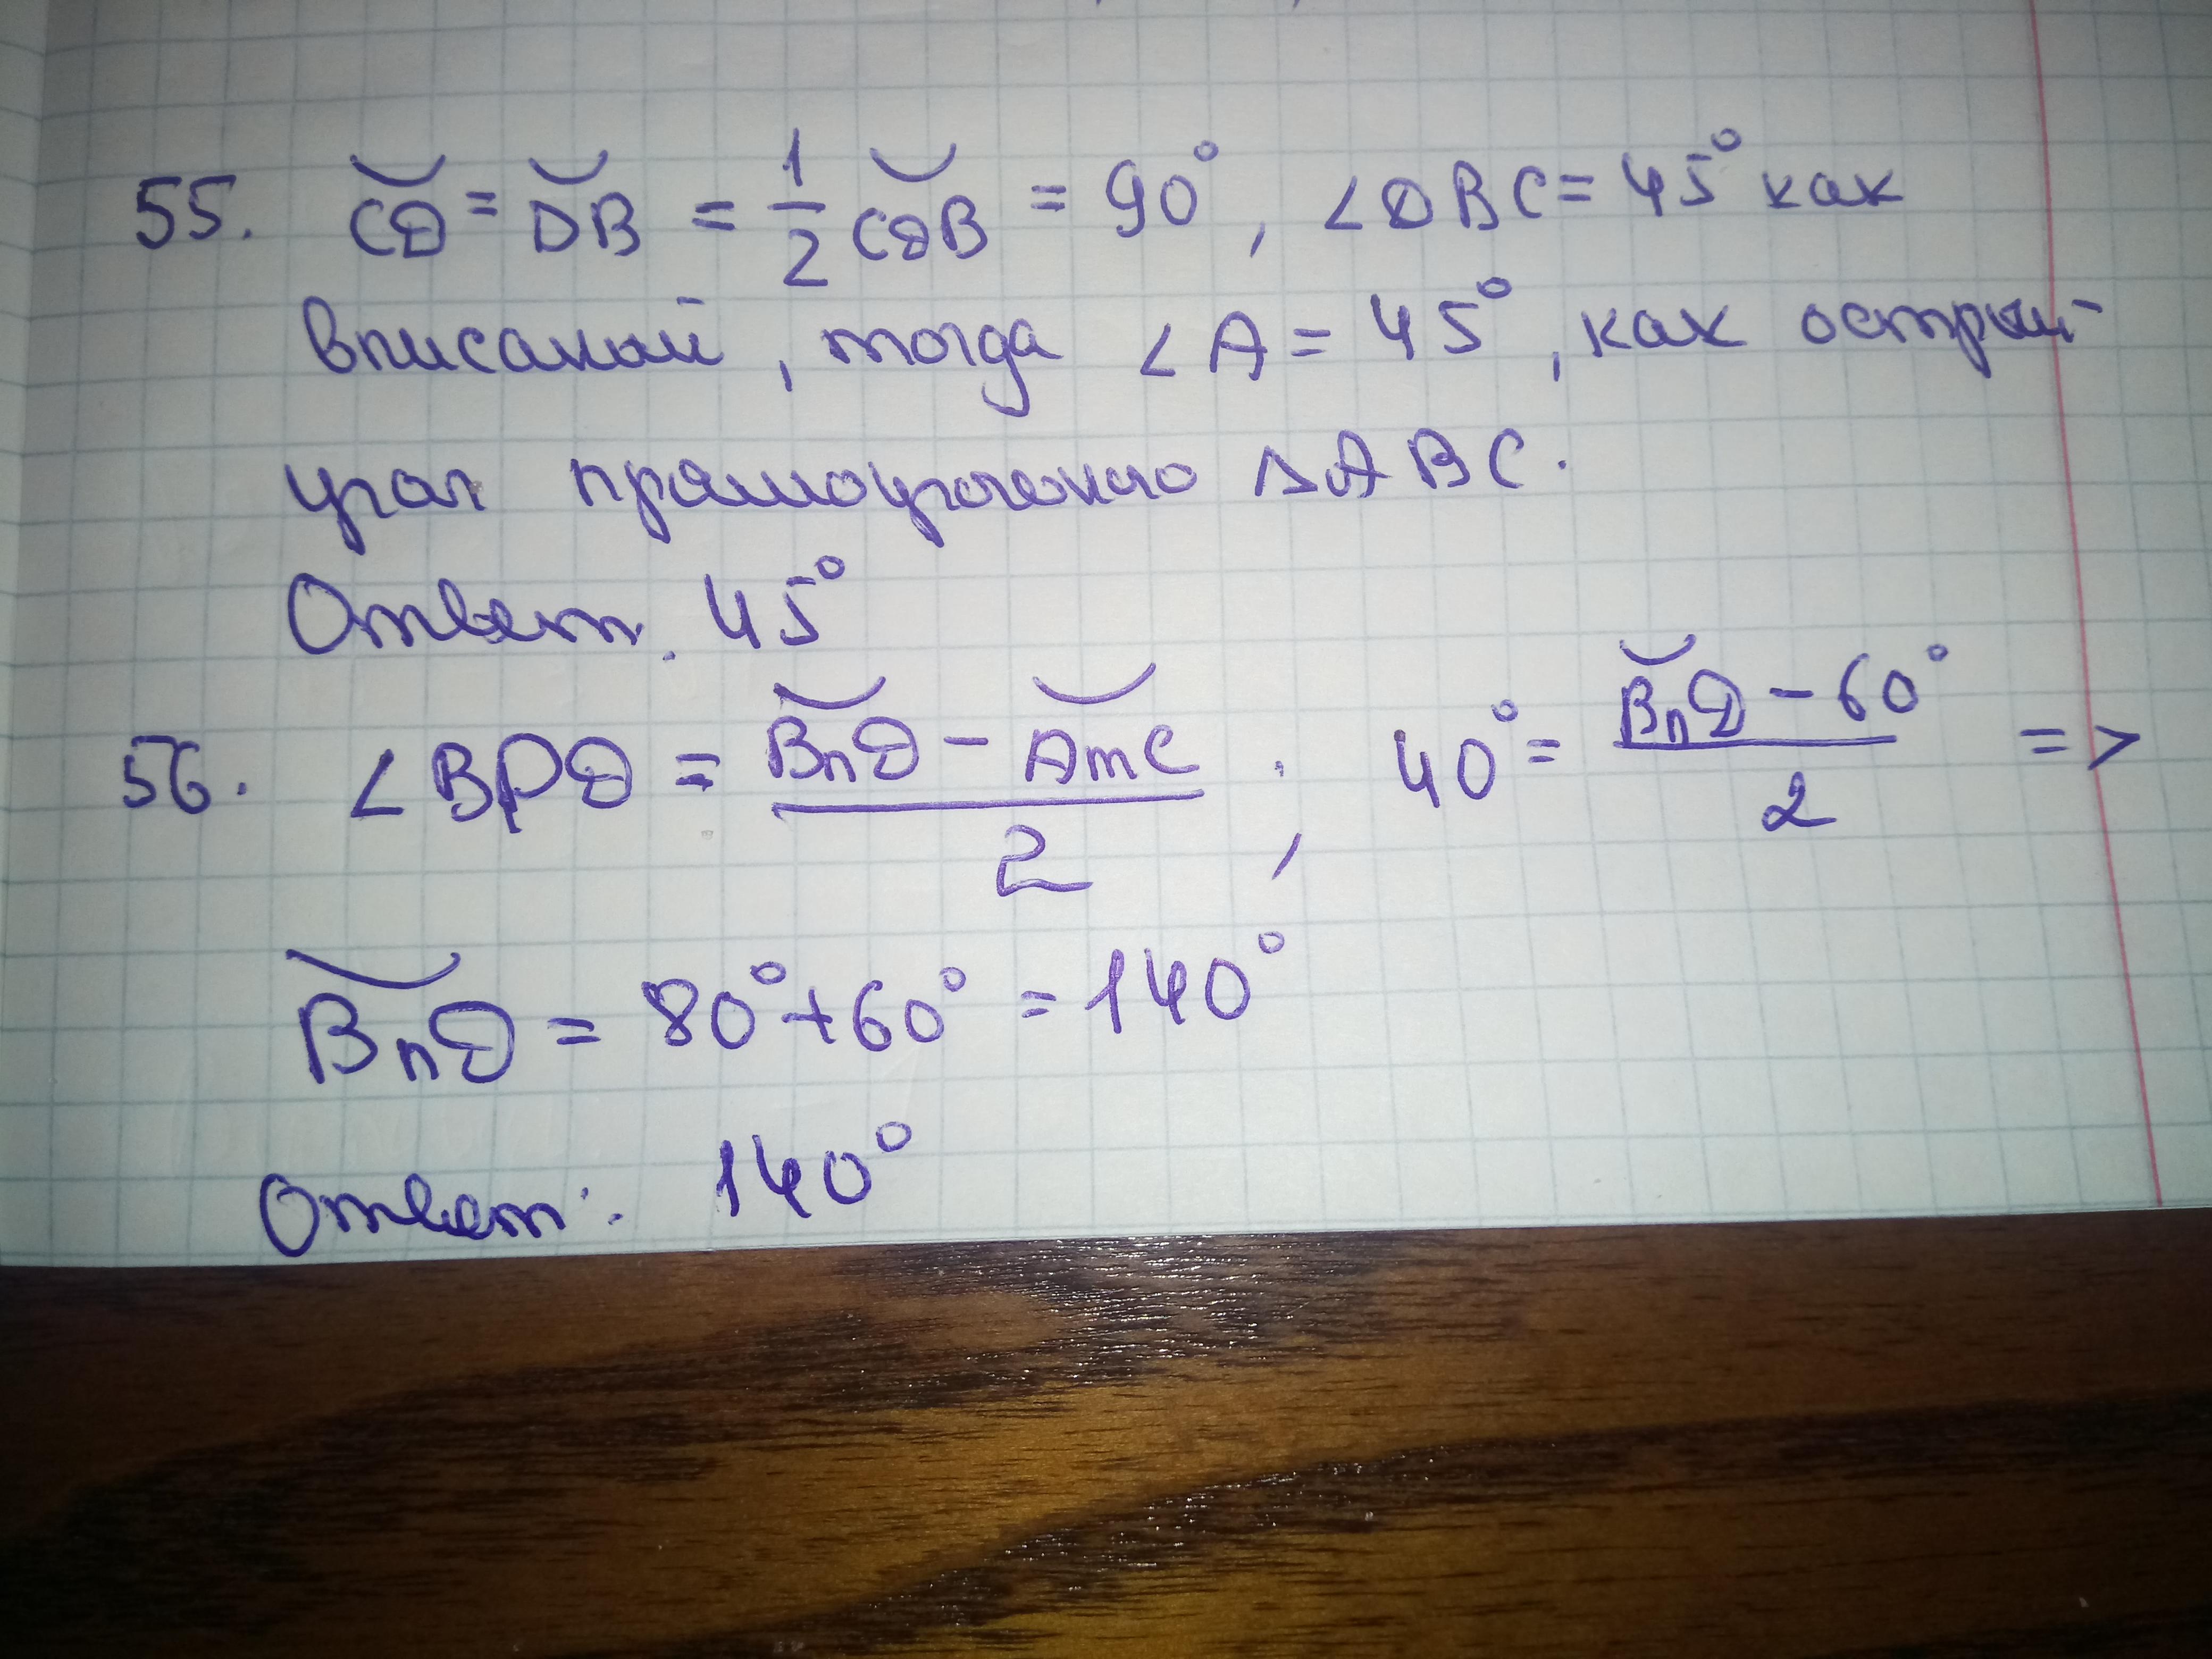 55. C͝D = D͝B = 1/2 C͝DB = 90°, ∠DBC = 45° как
вписаной, тогда ∠A = 45°, как острый
угол прямоугольного ΔABC.
Ответ. 45°
56. ∠BPD = (B͝nD - A͝mC)/2 ; 40° = (B͝nD - 60°)/2 =>
B͝nD = 80° + 60° = 140°
Ответ: 140°